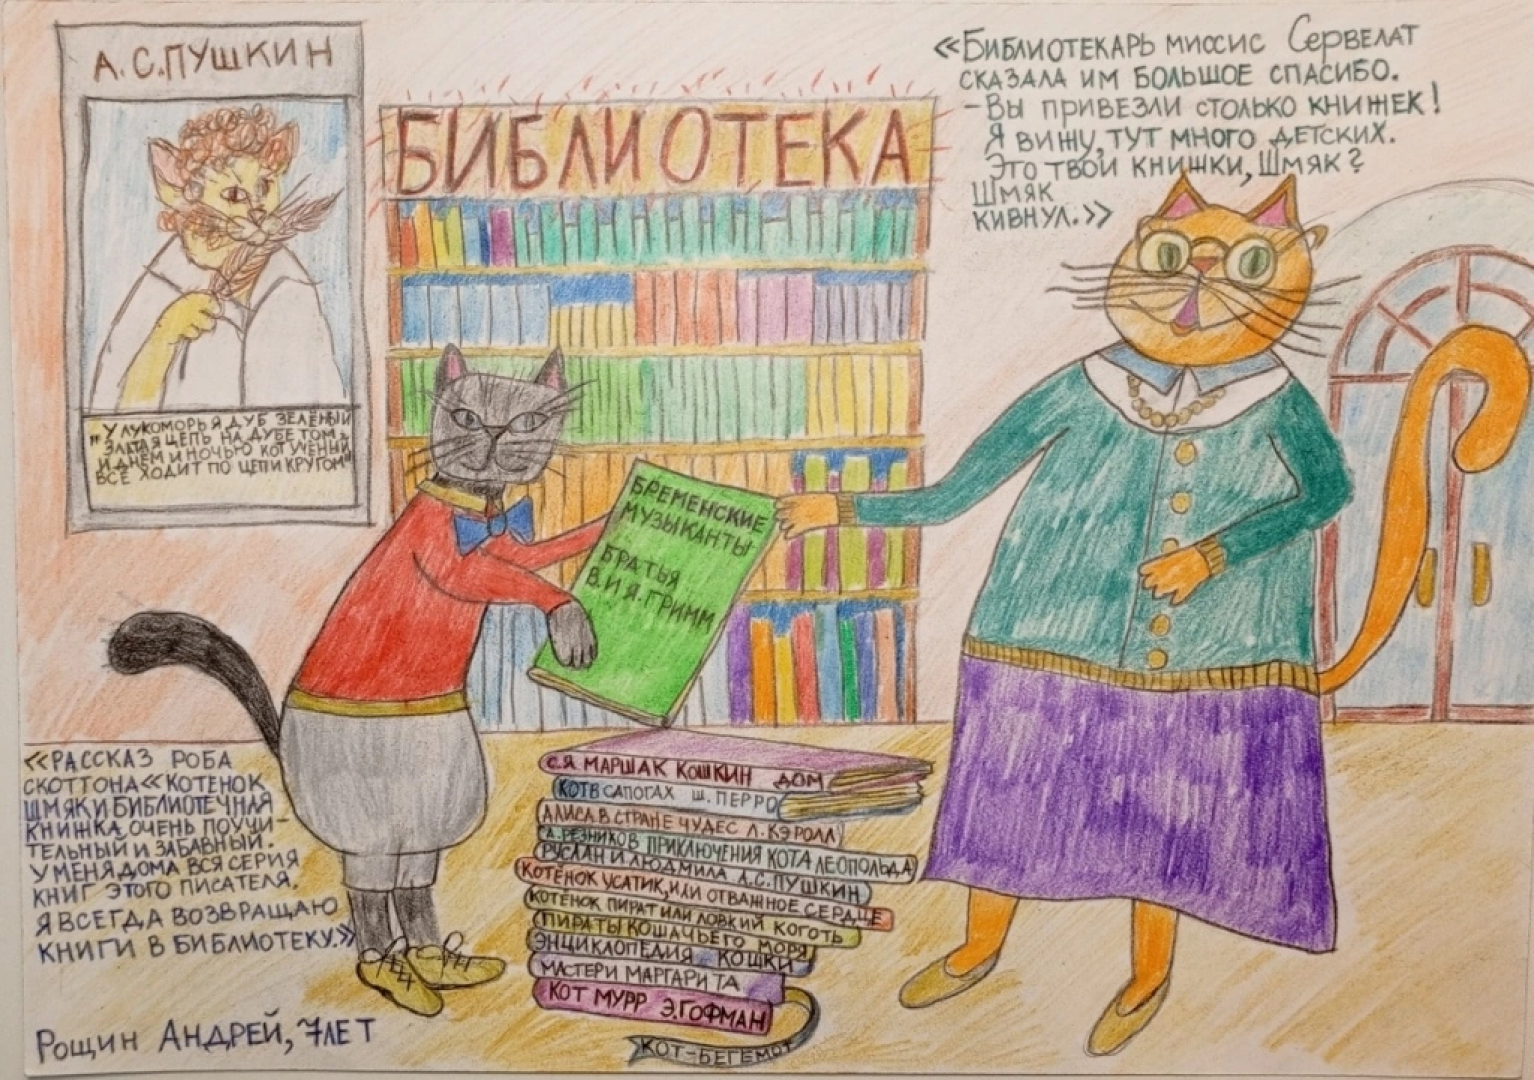 А.С.ПУШКИН
"У ЛУКОМОРЬЯ ДУБ ЗЕЛЁНЫЙ
ЗЛАТАЯ ЦЕПЬ НА ДУБЕ ТОМ.
И ДНЁМ И НОЧЬЮ КОТ УЧЁНЫЙ
ВСЁ ХОДИТ ПО ЦЕПИ КРУГОМ"
БИБЛИОТЕКА
«БИБЛИОТЕКАРЬ МИССИС СЕРВЕЛАТ
СКАЗАЛА ИМ БОЛЬШОЕ СПАСИБО.
- ВЫ ПРИВЕЗЛИ СТОЛЬКО КНИЖЕК!
Я ВИЖУ, ТУТ МНОГО ДЕТСКИХ.
ЭТО ТВОИ КНИЖКИ, ШМЯК?
ШМЯК
КИВНУЛ.»
БРЕМЕНСКИЕ
МУЗЫКАНТЫ
БРАТЬЯ
В. И Я. ГРИММ
С.Я МАРШАК КОШКИН ДОМ
КОТ В САПОГАХ Ш. ПЕРРО
АЛИСА В СТРАНЕ ЧУДЕС Л. КЭРОЛЛ
А. РЕЗНИКОВ ПРИКЛЮЧЕНИЯ КОТА ЛЕОПОЛЬДА
РУСЛАН И ЛЮДМИЛА А.С. ПУШКИН
КОТЕНОК УСАТИК, ИЛИ ОТВАЖНОЕ СЕРДЦЕ
КОТЕНОК ПИРАТ ИЛИ ЛОВКИЙ КОГОТЬ
ПИРАТЫ КОШАЧЬЕГО МОРЯ
ЭНЦИКЛОПЕДИЯ КОШКИ
МАСТЕР И МАРГАРИТА
КОТ МУРР Э.ГОФМАН
КОТ-БЕГЕМОТ
«РАССКАЗ РОБА
СКОТТОНА «КОТЕНОК
ШМЯК И БИБЛИОТЕЧНАЯ
КНИЖКА ОЧЕНЬ ПОУЧИ-
ТЕЛЬНЫЙ И ЗАБАВНЫЙ.
У МЕНЯ ДОМА ВСЯ СЕРИЯ
КНИГ ЭТОГО ПИСАТЕЛЯ.
Я ВСЕГДА ВОЗВРАЩАЮ
КНИГИ В БИБЛИОТЕКУ.»
РОЩИН АНДРЕЙ, 7 ЛЕТ